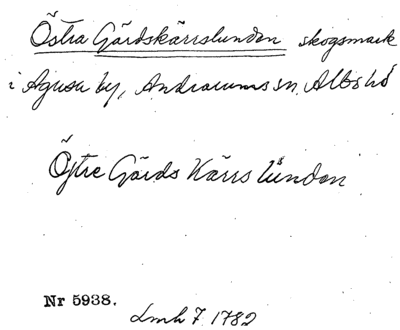 Östra Gärdskärrslundon skogsmark
i Agusa by, Andrarums sn. Albo hd
Östre Gärds Kärrs lundon
Nr 5938.
Lmh 7 1782